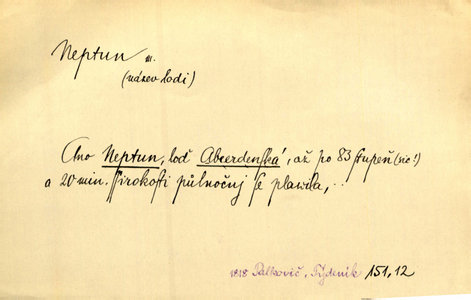 Neptun m.
(název lodi)
Ano Neptun, loď Abeerdenská, až po 83 stupeň (sic!)
a 20 min. ssirokosti půlnočnj se plawila, ..
1818 Palkovič, Týdeník 151, 12